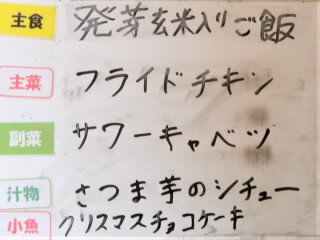 主食 発芽玄米入りご飯
主菜 フライドチキン
副菜 サワーキャベツ
汁物 さつま芋のシチュー
小魚 クリスマスチョコケーキ